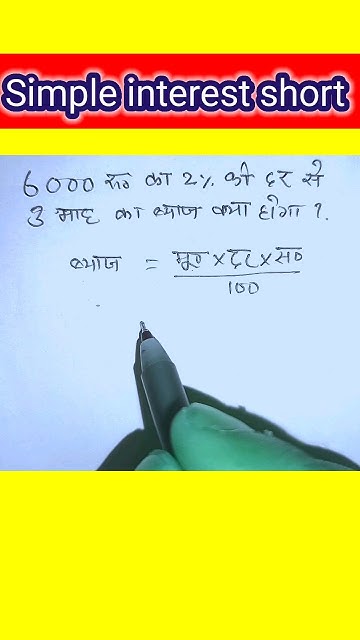 Simple interest short
6000 रु० का 2% की दर से
3 माह का ब्याज क्या होगा ?
ब्याज = मू० × दर × स०
100